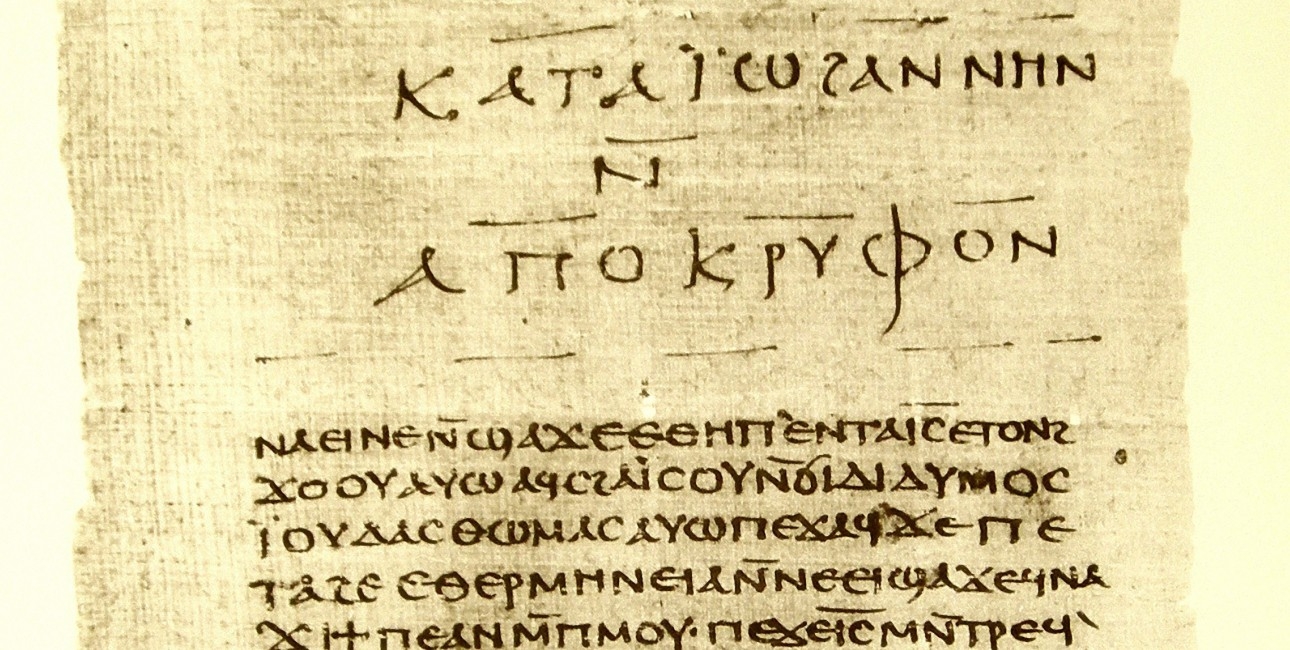 ⲕⲁⲧⲁ ⲓ̈ⲱϩⲁⲛⲛⲏⲛ
ⲛ̄
ⲁⲡⲟⲕⲣⲩⲫⲟⲛ
ⲛⲁⲉⲓⲛⲉⲛ̄ϣⲁϫⲉⲉⲑⲏⲡʼⲉⲛⲧⲁⲓ̅ⲥ̅ⲉⲧⲟⲛϩ
ϫⲟⲟⲩⲁⲩⲱⲁϥⲥϩⲁⲓ̈ⲥⲟⲩⲛ̄ϭⲓⲇⲓⲇⲩⲙⲟⲥ
ⲓ̈ⲟⲩⲇⲁⲥⲑⲱⲙⲁⲥⲁⲩⲱⲡⲉϫⲁϥϫⲉⲡⲉ
ⲧⲁϩⲉⲉⲑⲉⲣⲙⲏⲛⲉⲓⲁⲛ̄ⲛⲉⲉⲓϣⲁϫⲉϥⲛⲁ
ϫⲓϯⲡⲉⲁⲛⲙ̄ⲡⲙⲟⲩ·ⲡⲉϫⲉⲓ̅ⲥ̅ⲙⲛ̄ⲧⲣⲉϥʼ